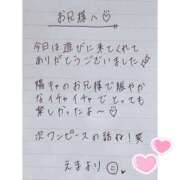 お兄様へ♡
今日は遊びに来てくれて
ありがとうございました
陽キャのお兄様で賑やか
なイチャイチャでとっても
楽しかったよ〜♡
次ワンピースの話ね！笑
えまより